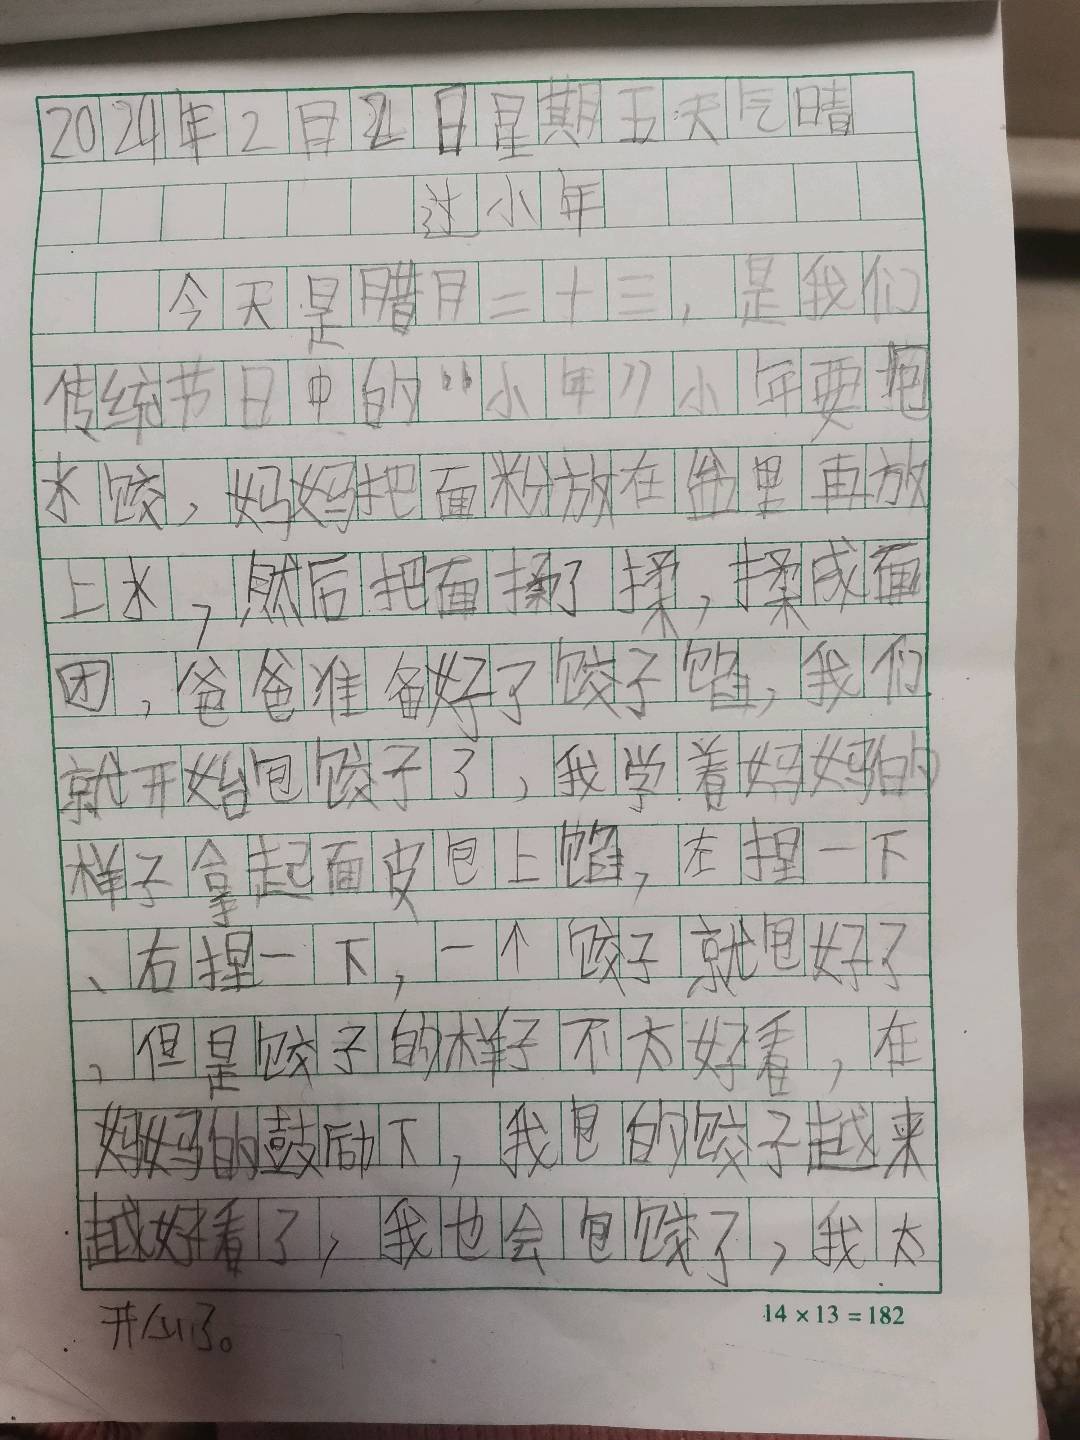 2024年2月2日星期五天气晴
过小年
今天是腊月二十三，是我们
传统节日中的“小年”小年要包
水饺，妈妈把面粉放在盆里再放
上水，然后把面揉了揉，揉成面
团，爸爸准备好了饺子馅，我们
就开始包饺子了，我学着妈妈的
样子拿起面皮包上馅，左捏一下
、右捏一下，一个饺子就包好了
，但是饺子的样子不太好看，在
妈妈的鼓励下，我包的饺子越来
越好看了，我也会包饺了，我太
开心了。
14×13=182